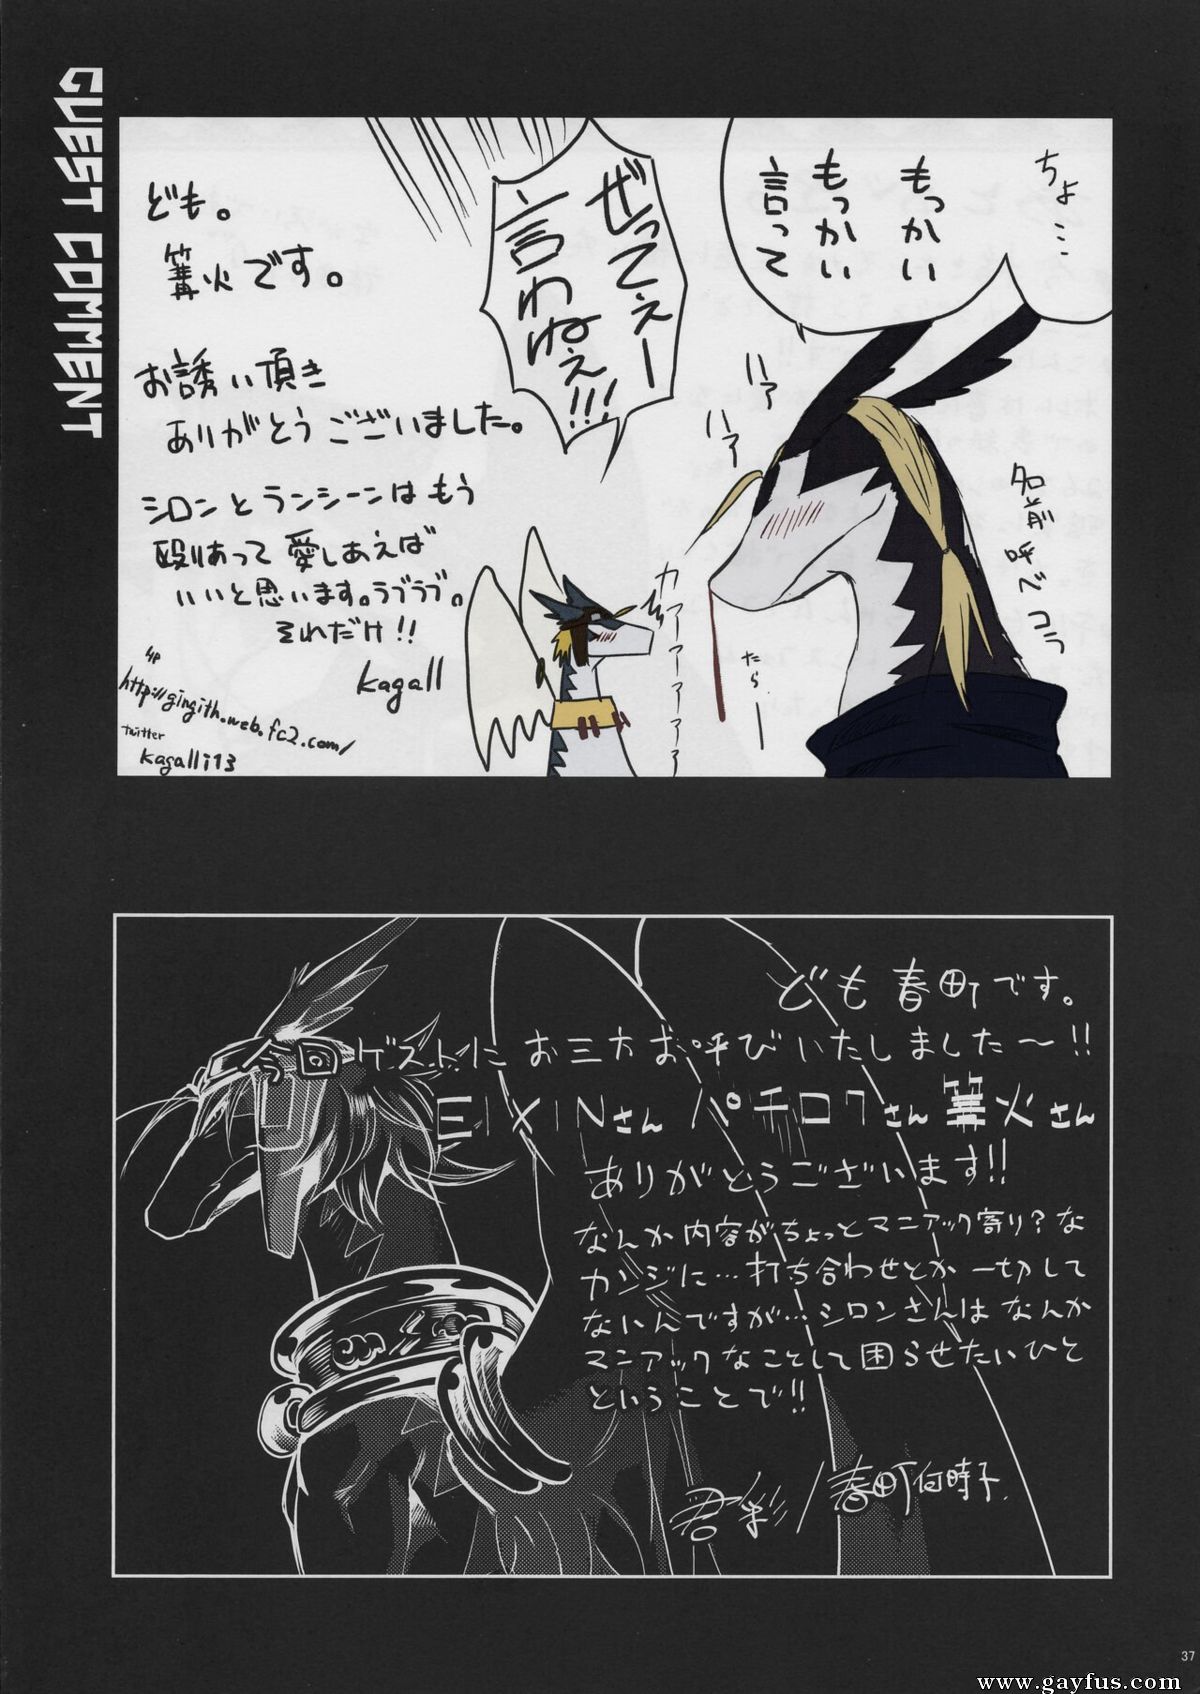 GUEST COMMENT
ちょ…
もっかい
もっかい
言って
ぜってぇー
言わねぇ!!!
ハア
ハア
名前
呼べ
コラ
カアーアーアアア
たらー
ども。
篝火です。
お誘い頂き
ありがとうございました。
シロンとランシーンはもう
殴りあって愛しあえば
いいと思います。ラブラブ。
それだけ!!
kagall
HP
http://gingith.web.fc2.com/
twitter
kagalli13
ども春町です。
ゲストにお三方お呼びいたしました〜!!
EIXINさん パチロクさん 篝火さん
ありがとうございます!!
なんか内容がちょっとマニアック寄り?な
カンジに…打ち合わせとか一切して
ないんですが…シロンさんはなんか
マニアックなことして困らせたいひと
ということで!!
君彩/春町何時子
37
www.gayfus.com